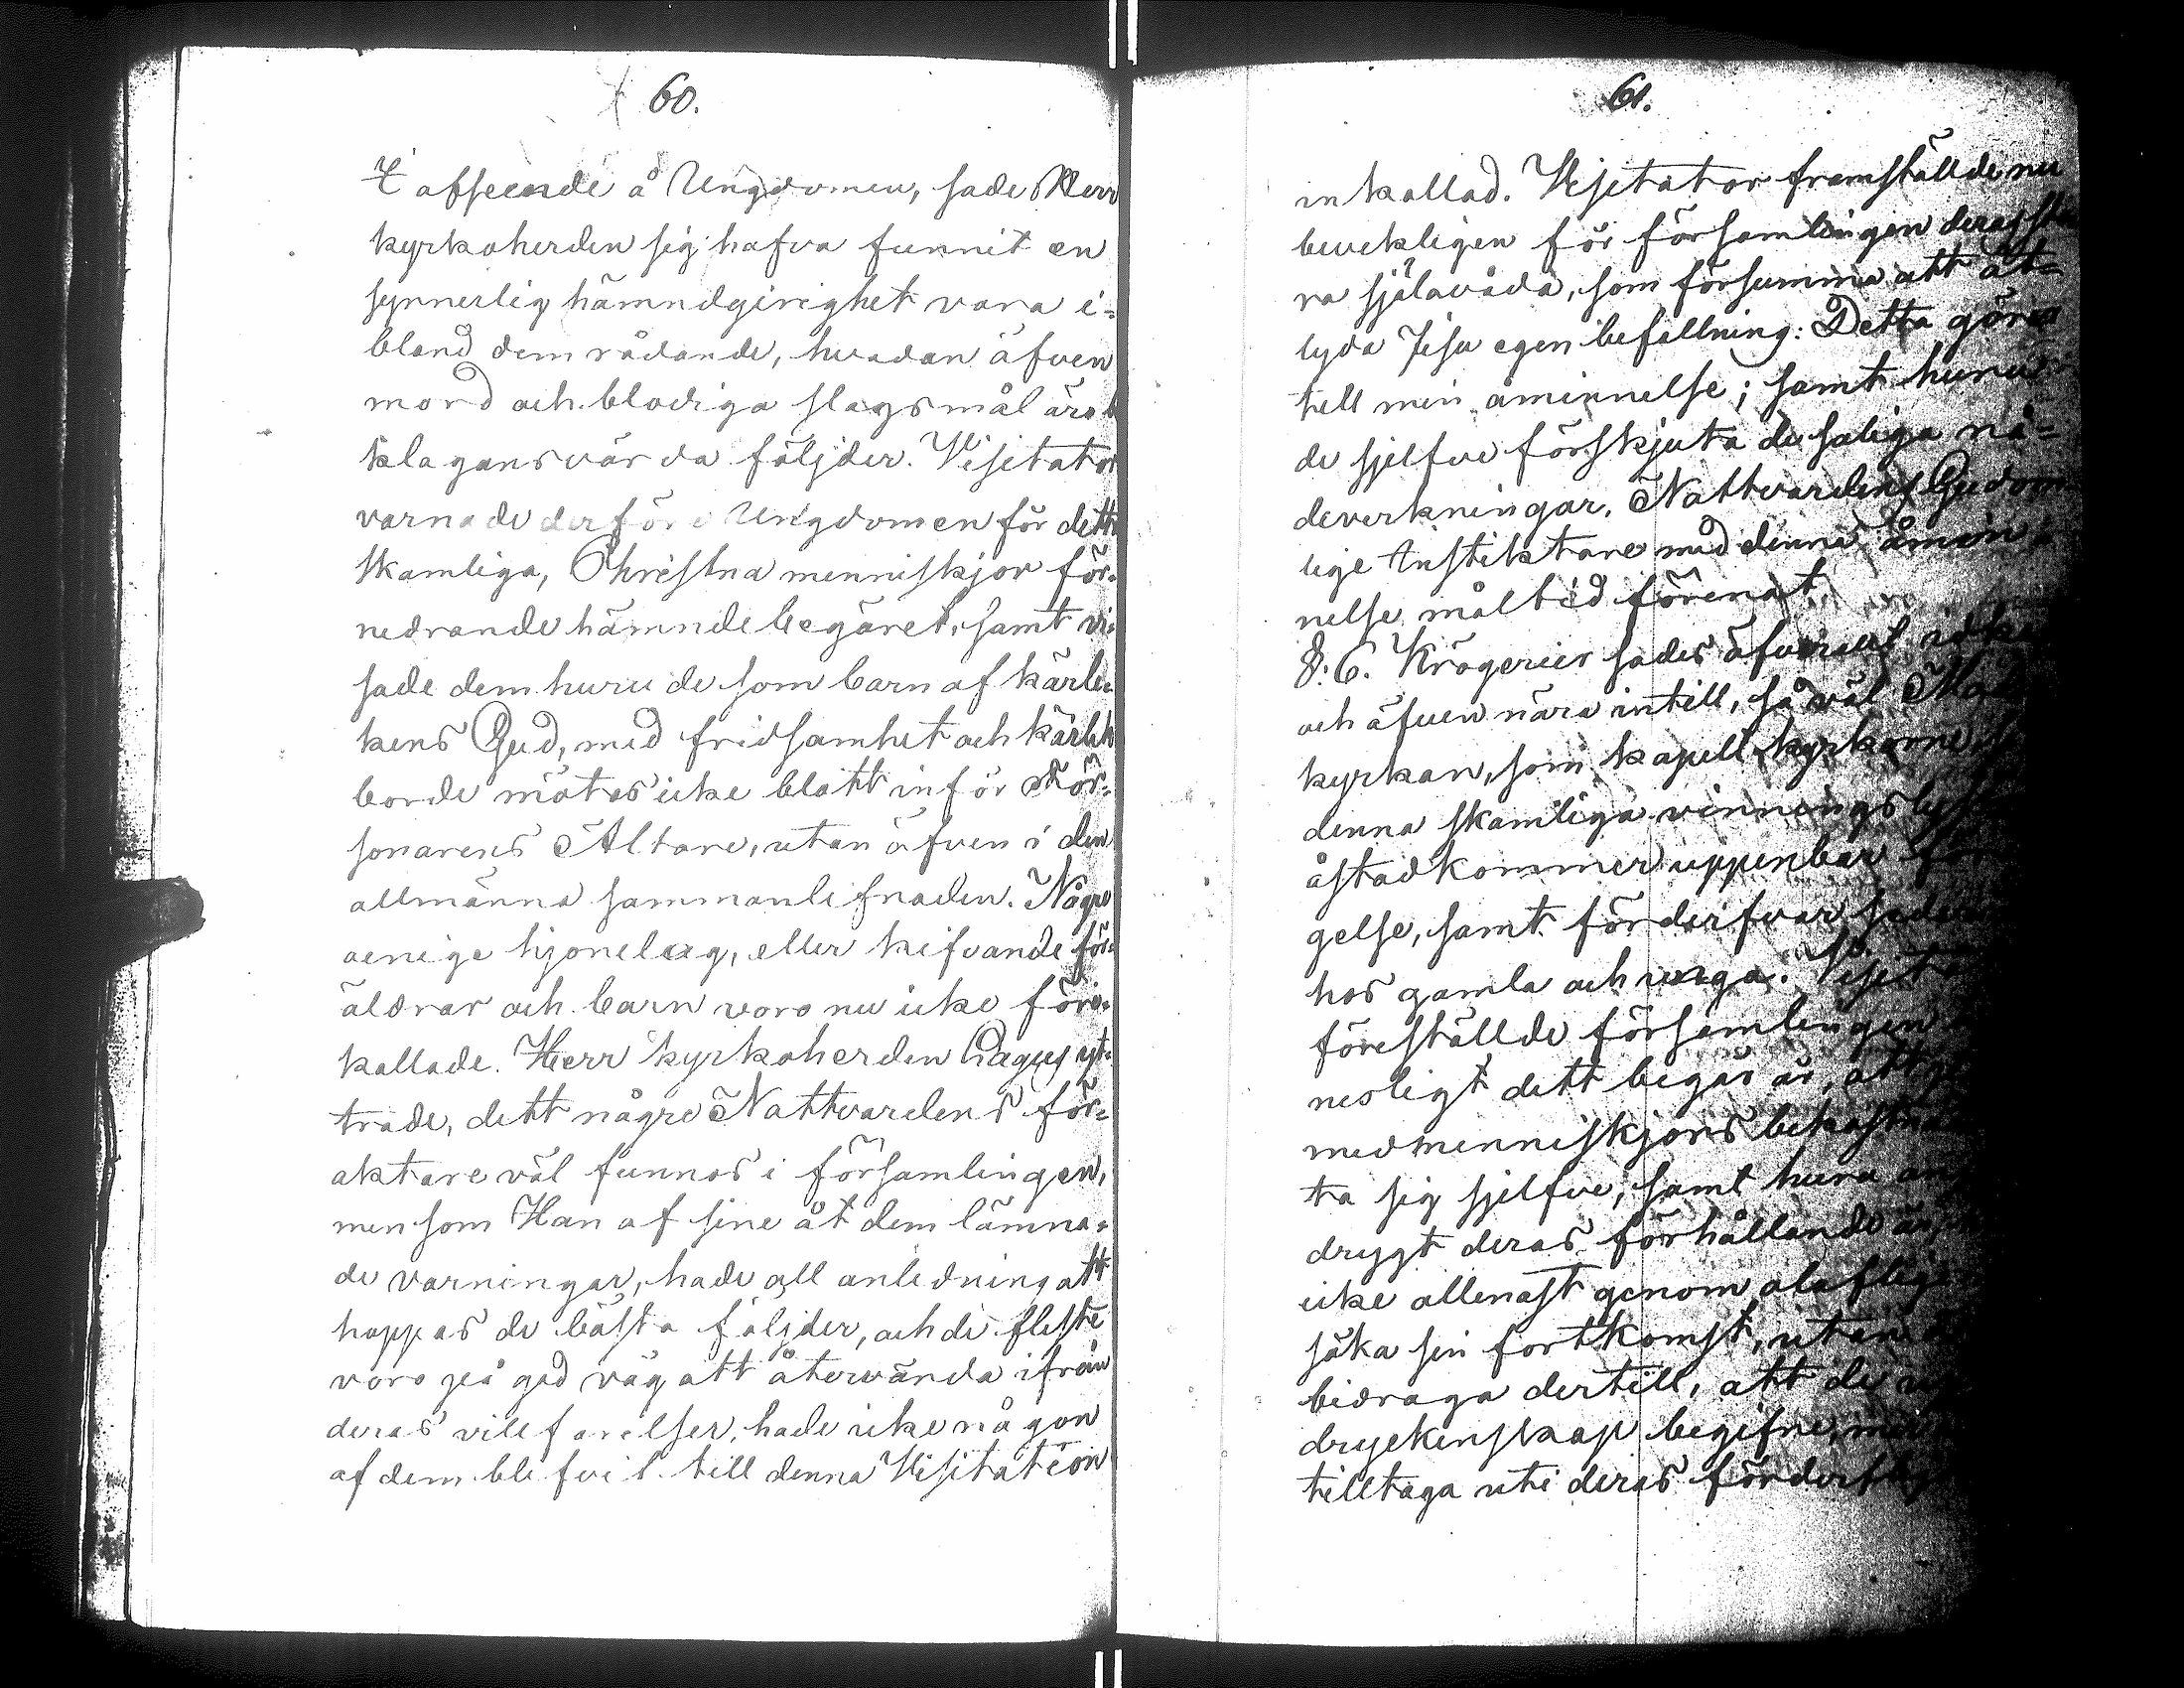 60.
I afseende å Ungdomen, sade Herr
kyrkoherden sig hafva funnit en
synnerlig hämndgirighet vara i=
bland dem rådande, hvadan äfven
mord och blodiga slagsmål äro be
klagansvärda följder. Visitator
varnade derföre Ungdomen för detta
skamliga, Christna menniskjor för=
nedrande hämndebegäret, samt vi=
sade dem huru de som barn af kärle=
kens Gud, med fridsamhet och kärlek
borde mötas icke blott inför För=
sonarens Altare, utan äfven i den
allmänna sammanlefnaden. Någre
oenige hjonelag, eller kifvande för=
äldrar och barn voro nu icke före=
kallade. Herr kyrkoherden yt=
trade, dett någre Nattvardens för=
aktare väl funnos i församlingen,
men som Han af sine åt dem lämna=
de varningar, hade all anledning att
hoppas de bästa följder, och de fleste
voro på god väg att återvända ifrån
deras villfarelser, hade icke någon
af dem blifvit till denna Visitation
61.
inkallad. Visitator framställde nu
bevekligen för församlingen deras sto
ra själavåda, som försumma att åt=
lyda Jesu egen befallning: Detta görer
till min åminnelse; samt huru
de sjelfve förskjuta de saliga nå=
deverkningar, Nattvardens Gudom
lige Instiktare med denna åmin
nelse måltid förenat.
§. 6. Krögerier sades öfverallt idkas
och äfven nära intill, så väl Mo
kyrkan, som kapell kyrkorne
denna skamliga vinningsly
åstadkommer uppenbar för
gelse, samt förderfvar seder
hos gamla och unga. Visit
föreställde församlingen
nesligt dett begär är, att
medmenniskjors bekostna
ta sig sjelfve; samt huru an
drygt deras förhållande är
icke allenast genom olaflig
söka sin fortkomst, utan
bidraga dertill, att de
dryckenskap begifne,
tilltaga uti deras förderflig